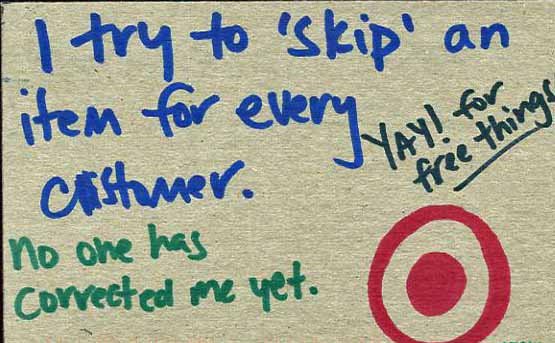 I try to 'skip' an
item for every
customer.
YAY! for
free things
no one has
corrected me yet.